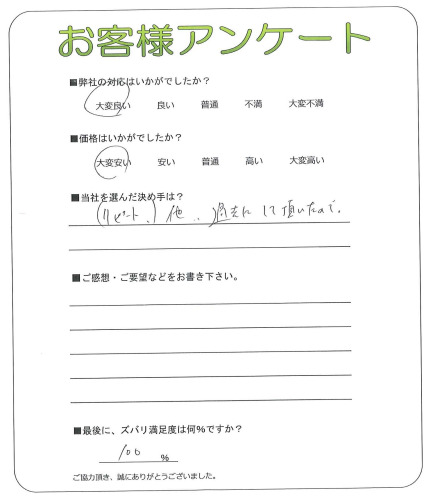 お客様アンケート
■弊社の対応はいかがでしたか？
大変良い 良い 普通 不満 大変不満
■価格はいかがでしたか？
大変安い 安い 普通 高い 大変高い
■当社を選んだ決め手は？
(リピート、) 他、、) 過去にして頂いたので。
■ご感想・ご要望などをお書き下さい。
■最後に、ズバリ満足度は何％ですか？
100 ％
ご協力頂き、誠にありがとうございました。